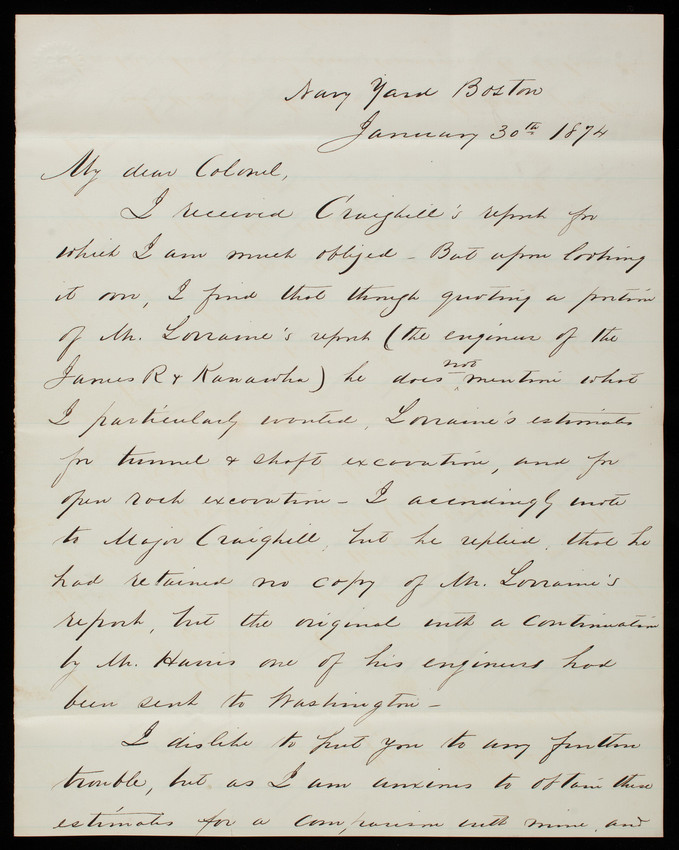 Navy Yard Boston
January 30th 1874
My dear Colonel,
I received Craighill's report for
which I am much obliged - But upon looking
it over, I find that though quoting a portion
of Mr. Lorraine's report (the engineer of the
James R & Kanawha) he does not mention what
I particularly wanted, Lorraine's estimates
for tunnel & shaft excavation, and for
open rock excavation - I accordingly wrote
to Major Craighill, but he replied, that he
had retained no copy of Mr. Lorraine's
report, but the original with a continuation
by Mr. Harris one of his engineers had
been sent to Washington -
I dislike to put you to any further
trouble, but as I am anxious to obtain these
estimates for a comparison with mine, and